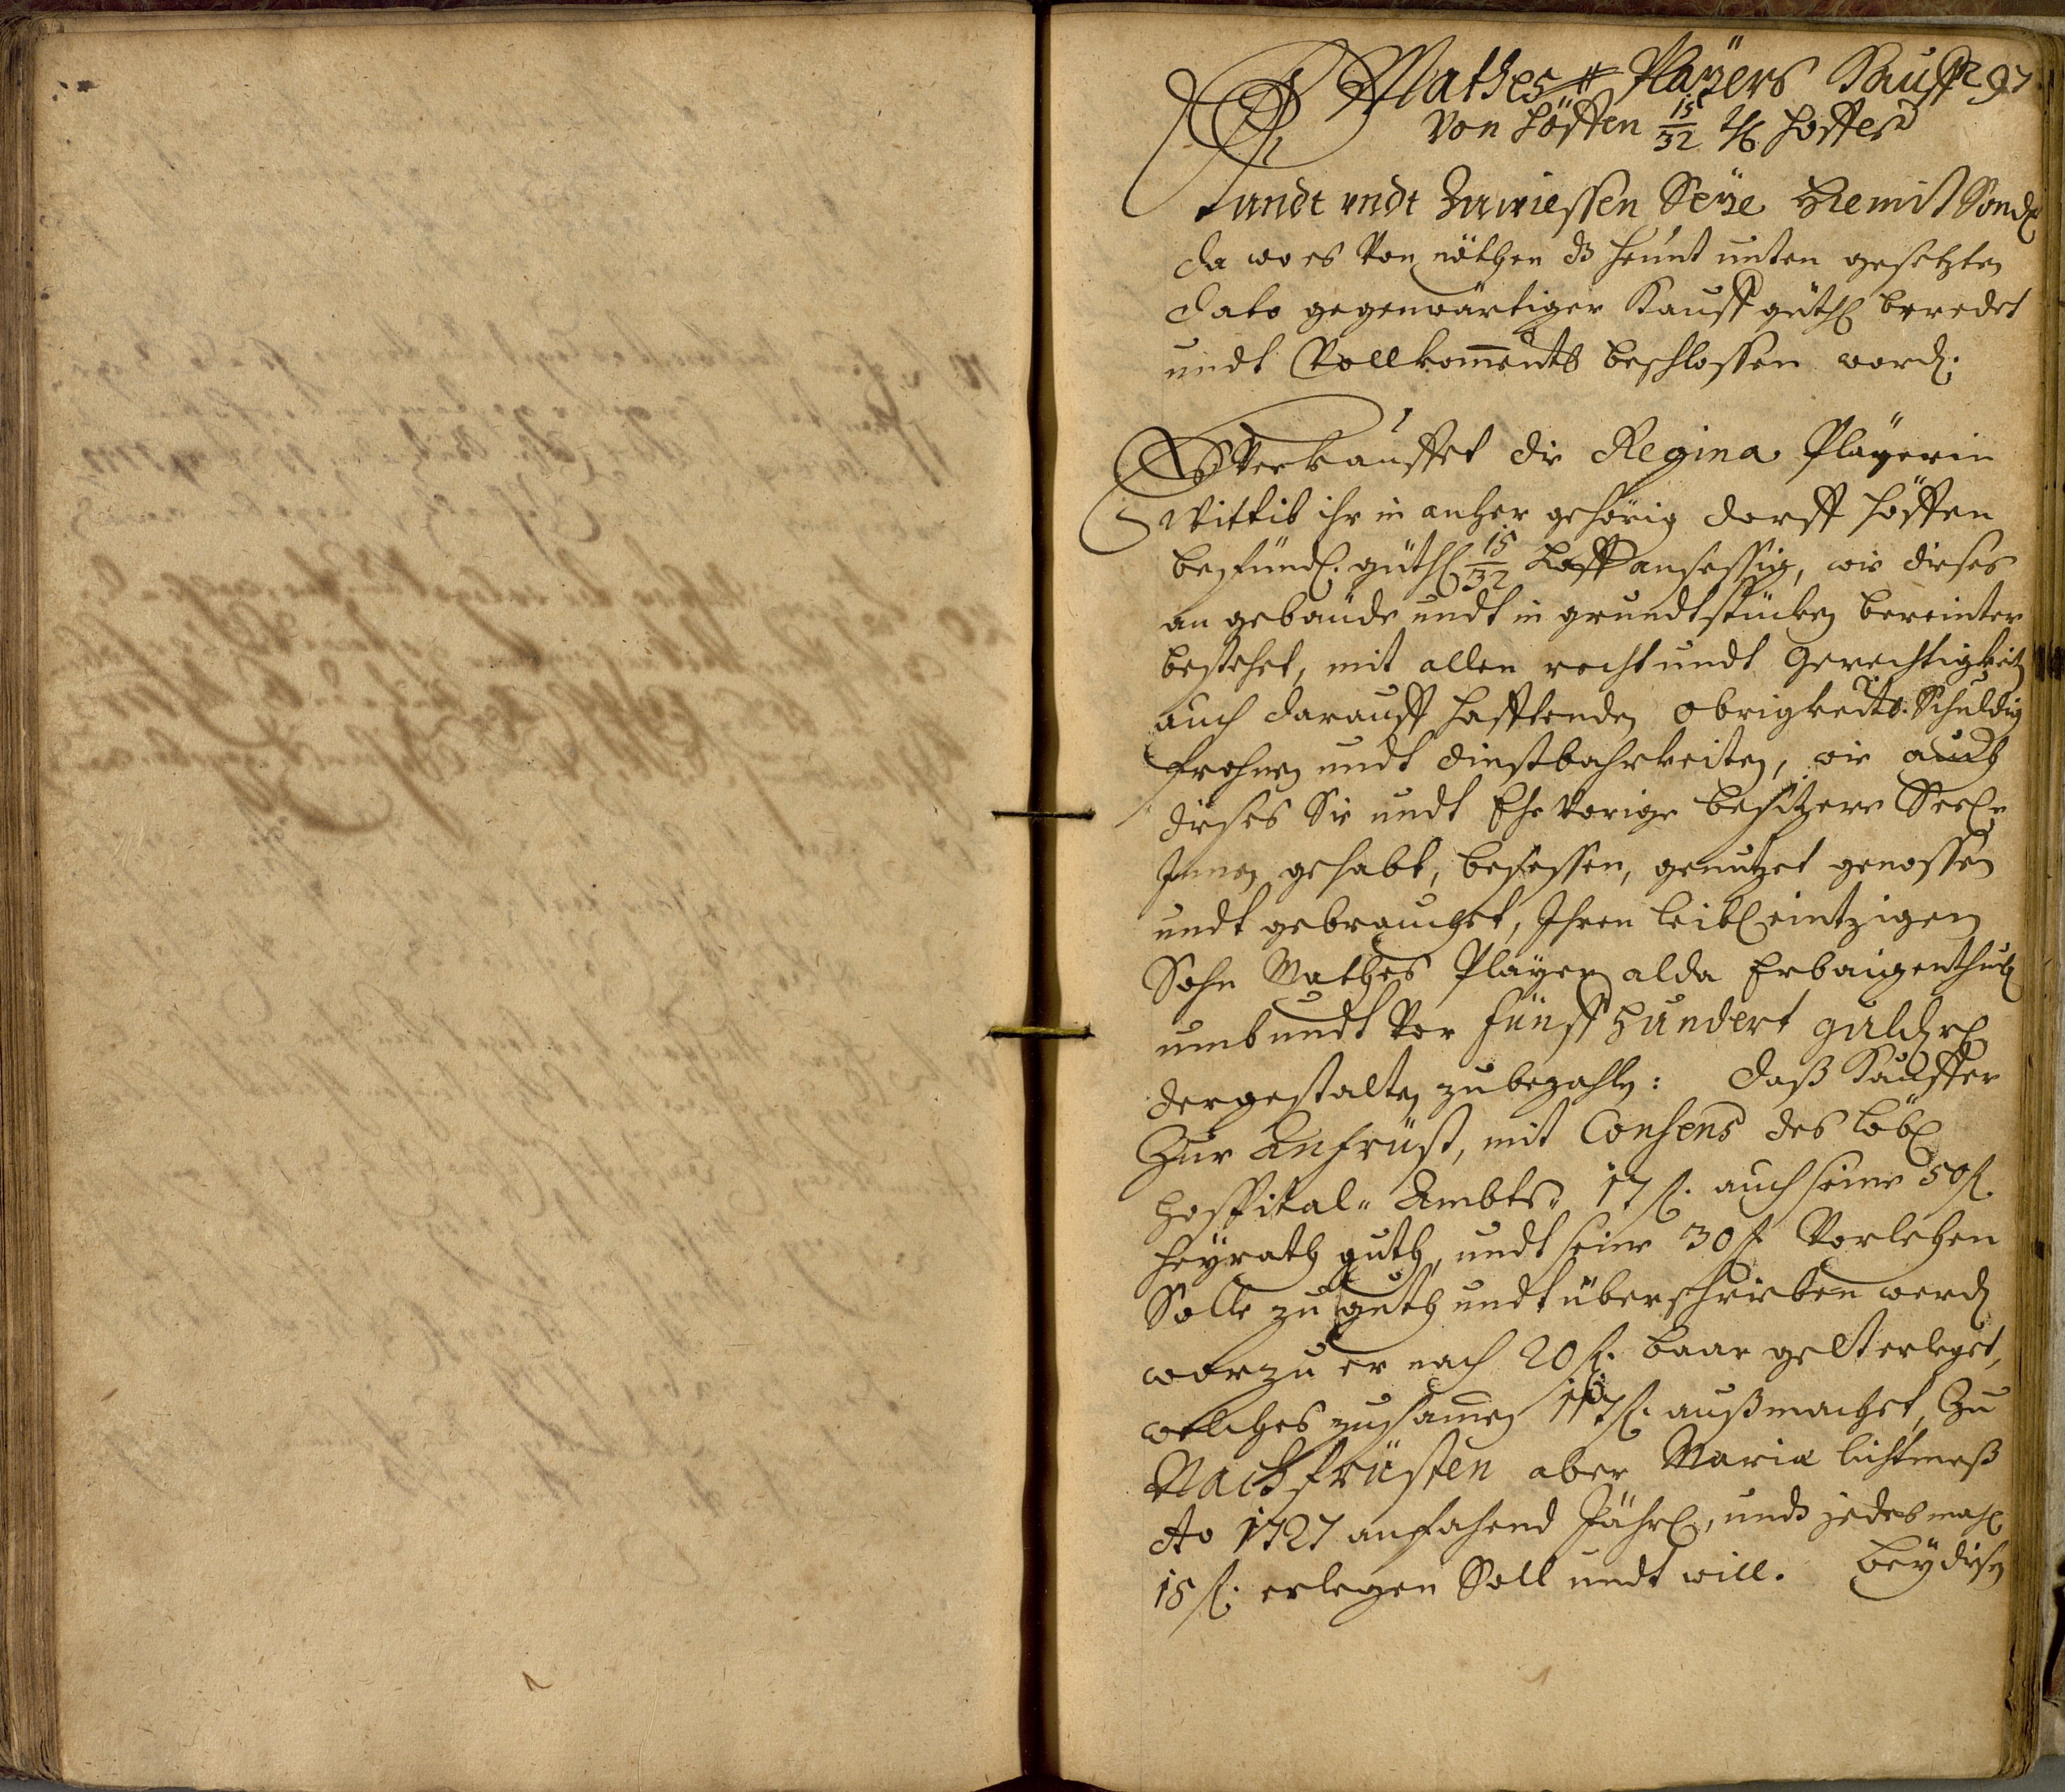 Mathes Players Kauff 97
Von Höffen 15/32 Hoffes
Kundt undt Zuwiessen Seye Hiemit Sond
da wo es von nöthen dß heunt unten gesetzten
dato gegenwärtiger Kauff güthl beredet
undt Vollkomments beschlossen word.
Es Verkauffet die Regina Playerin
Wittib ihr in anher gehörig dorff Höffen
befündl. güthl 15/32 Hoff ansessig, wie dieses
an gebäude undt in grundtstücken bereinter
bestehet, mit allen recht undt Gerechtigkeit
auch darauff hafftenden obrigkeits Schuldig
frohnen undt dinstbahrkeiten, wie auch
dieses Sie undt Ehe Vorige besitzere Seel
Innen gehabt, besessen, genutzet genossen
undt gebrauchet, Ihren leibl eintzigen
Sohn Mathes Player alda Erbaigenthuml
umb undt Vor fünff hundert guld
dergestalten zubezahlen: daß Kauffer
Zur Anfrüst, mit Consens des löbl
Hospital Ambts 17 fl. auch seine 50 fl.
Heyrath guth, undt seine 30 fl Vorlehen
Solle zu guth undt überschrieben werd
worzu er nach 20 fl. baar gelt erleget,
welches zusamen 117 fl. außmachet, Zu
Nachfrüsten aber Mariæ lichtmeß
Ao 1727 anfahend Jährl, undt jedes mahl
15 fl. erlegen Soll undt will. Bey diesen